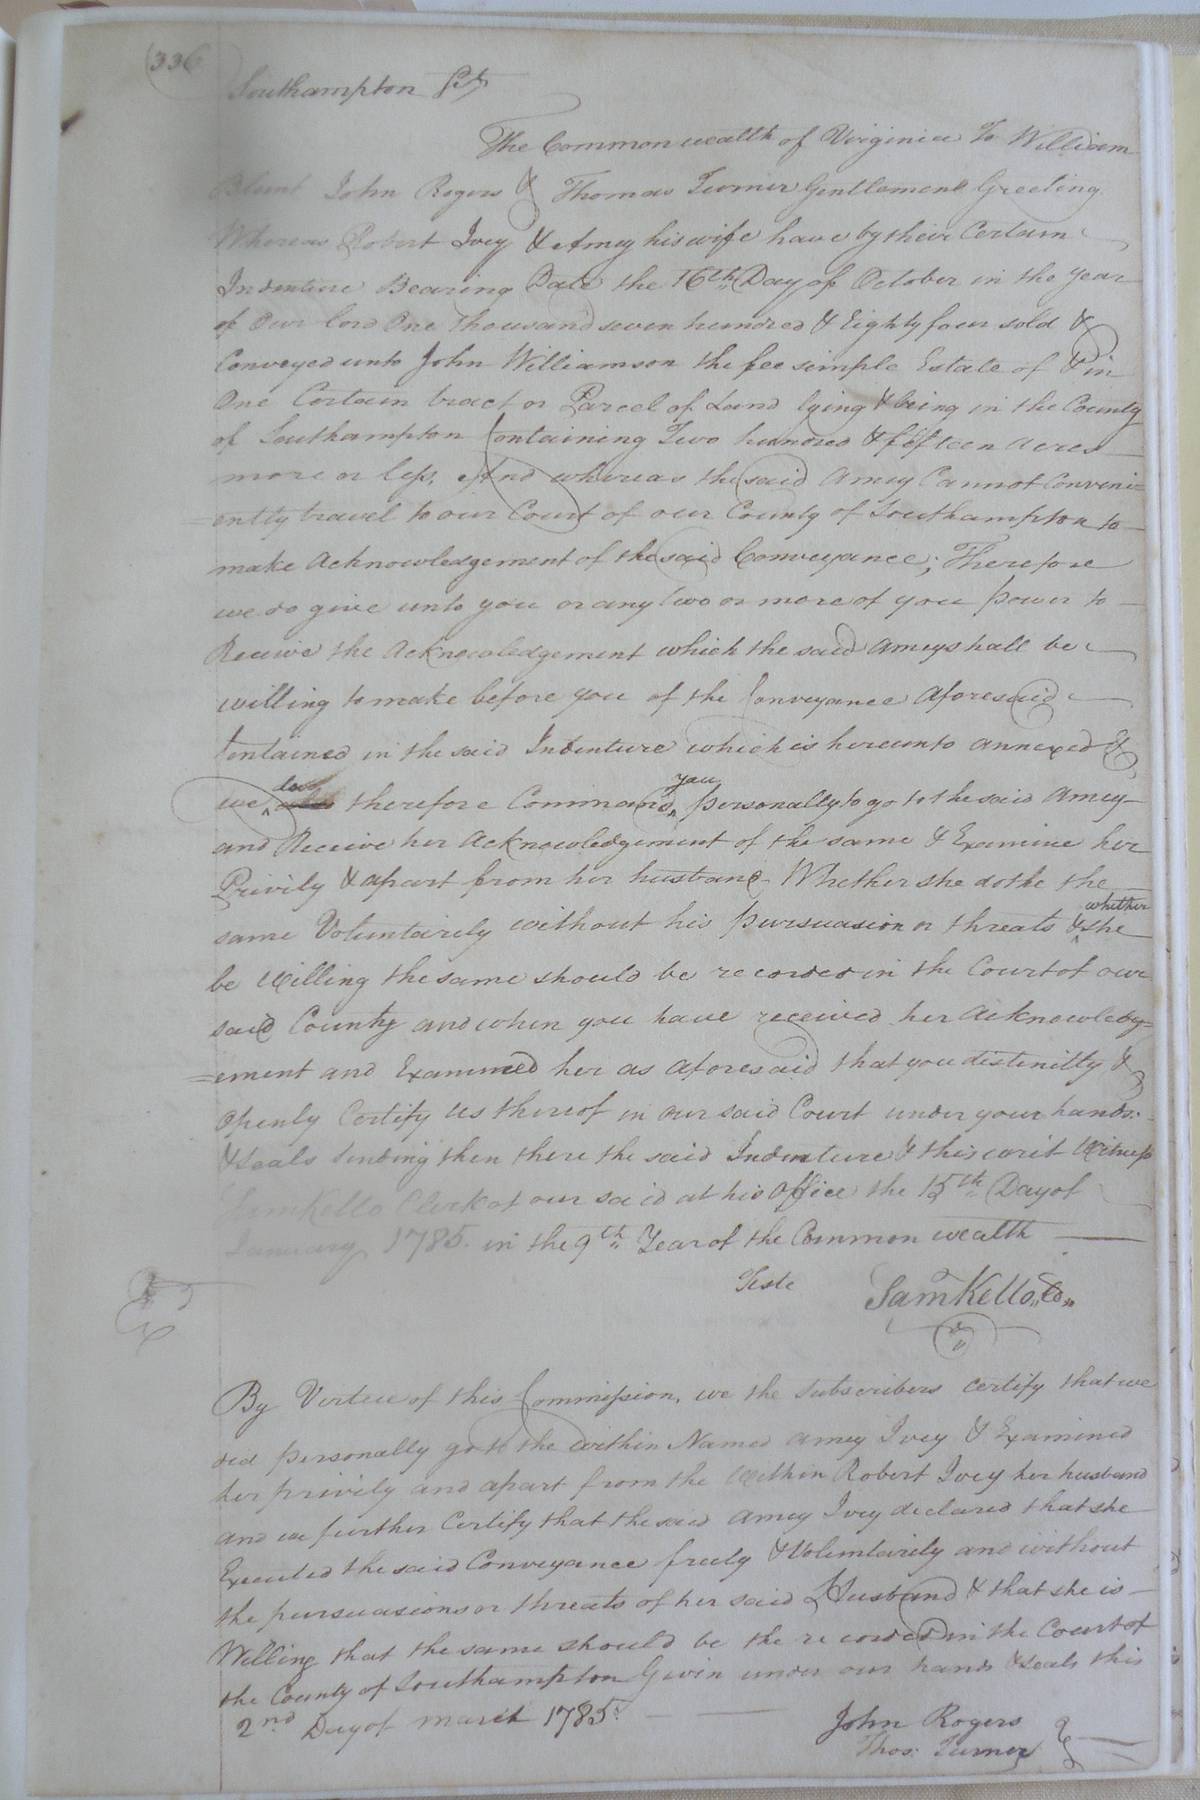 (336
Southampton Sct
The Commonwealth of Virginia To William
Blunt John Rogers & Thomas Turner Gentlemen Greeting
Whereas Robert Ivey & Amey his wife have by their Certain
Indenture Bearing Date the 16th Day of October in the year
of Our lord One thousand seven hundred & Eighty four sold &
Conveyed unto John Williamson the fee simple Estate of & in
One Certain tract or Parcel of Land lying & being in the County
of Southampton Containing Two hundred & fifteen acres
more or less, And whereas the said Amey Cannot Conveni=
=ently travel to our Court of our County of Southampton to
make Acknowledgement of the said Conveyance; Therefore
we do give unto you or any two or more of you power to
Receive the Acknowledgement which the said Amey shall be
willing to make before you of the Conveyance Aforesaid
Contained in the said Indenture which is hereunto annexed &
we do therefore Command you personally to go to the said Amey
and Receive her Acknowledgement of the same & Examine her
Privily & apart from her husband Whether she dothe the
same Voluntarily without his pursuasion or threats & whether she
be Willing the same should be recorded in the Court of our
said County and when you have received her Acknowledg=
=ement and Examined her as aforesaid that you distinitly &
Openly Certify us thereof in our said Court under your hands
& seals sending then there the said Indenture & this writ Witness
Sam Kello Clerk of our said at his Office the 15th Day of
January 1785. in the 9th Year of the Common wealth
Teste Sam Kello
By Virtue of this Commission, we the subscribers certify that we
did personally go to the within Named Amey Ivey & Examined
her privily and apart from the Within Robert Ivey her husband
and we further Certify that the said Amey Ivey declared that she
Executed the said Conveyance freely & Voluntarily and without
the pursuasions or threats of her said Husband & that she is
Willing that the same should be the recorded in the Court of
the County of Southampton Given under our hands & seals this
2nd Day of march 1785.
John Rogers
Thos: Turner